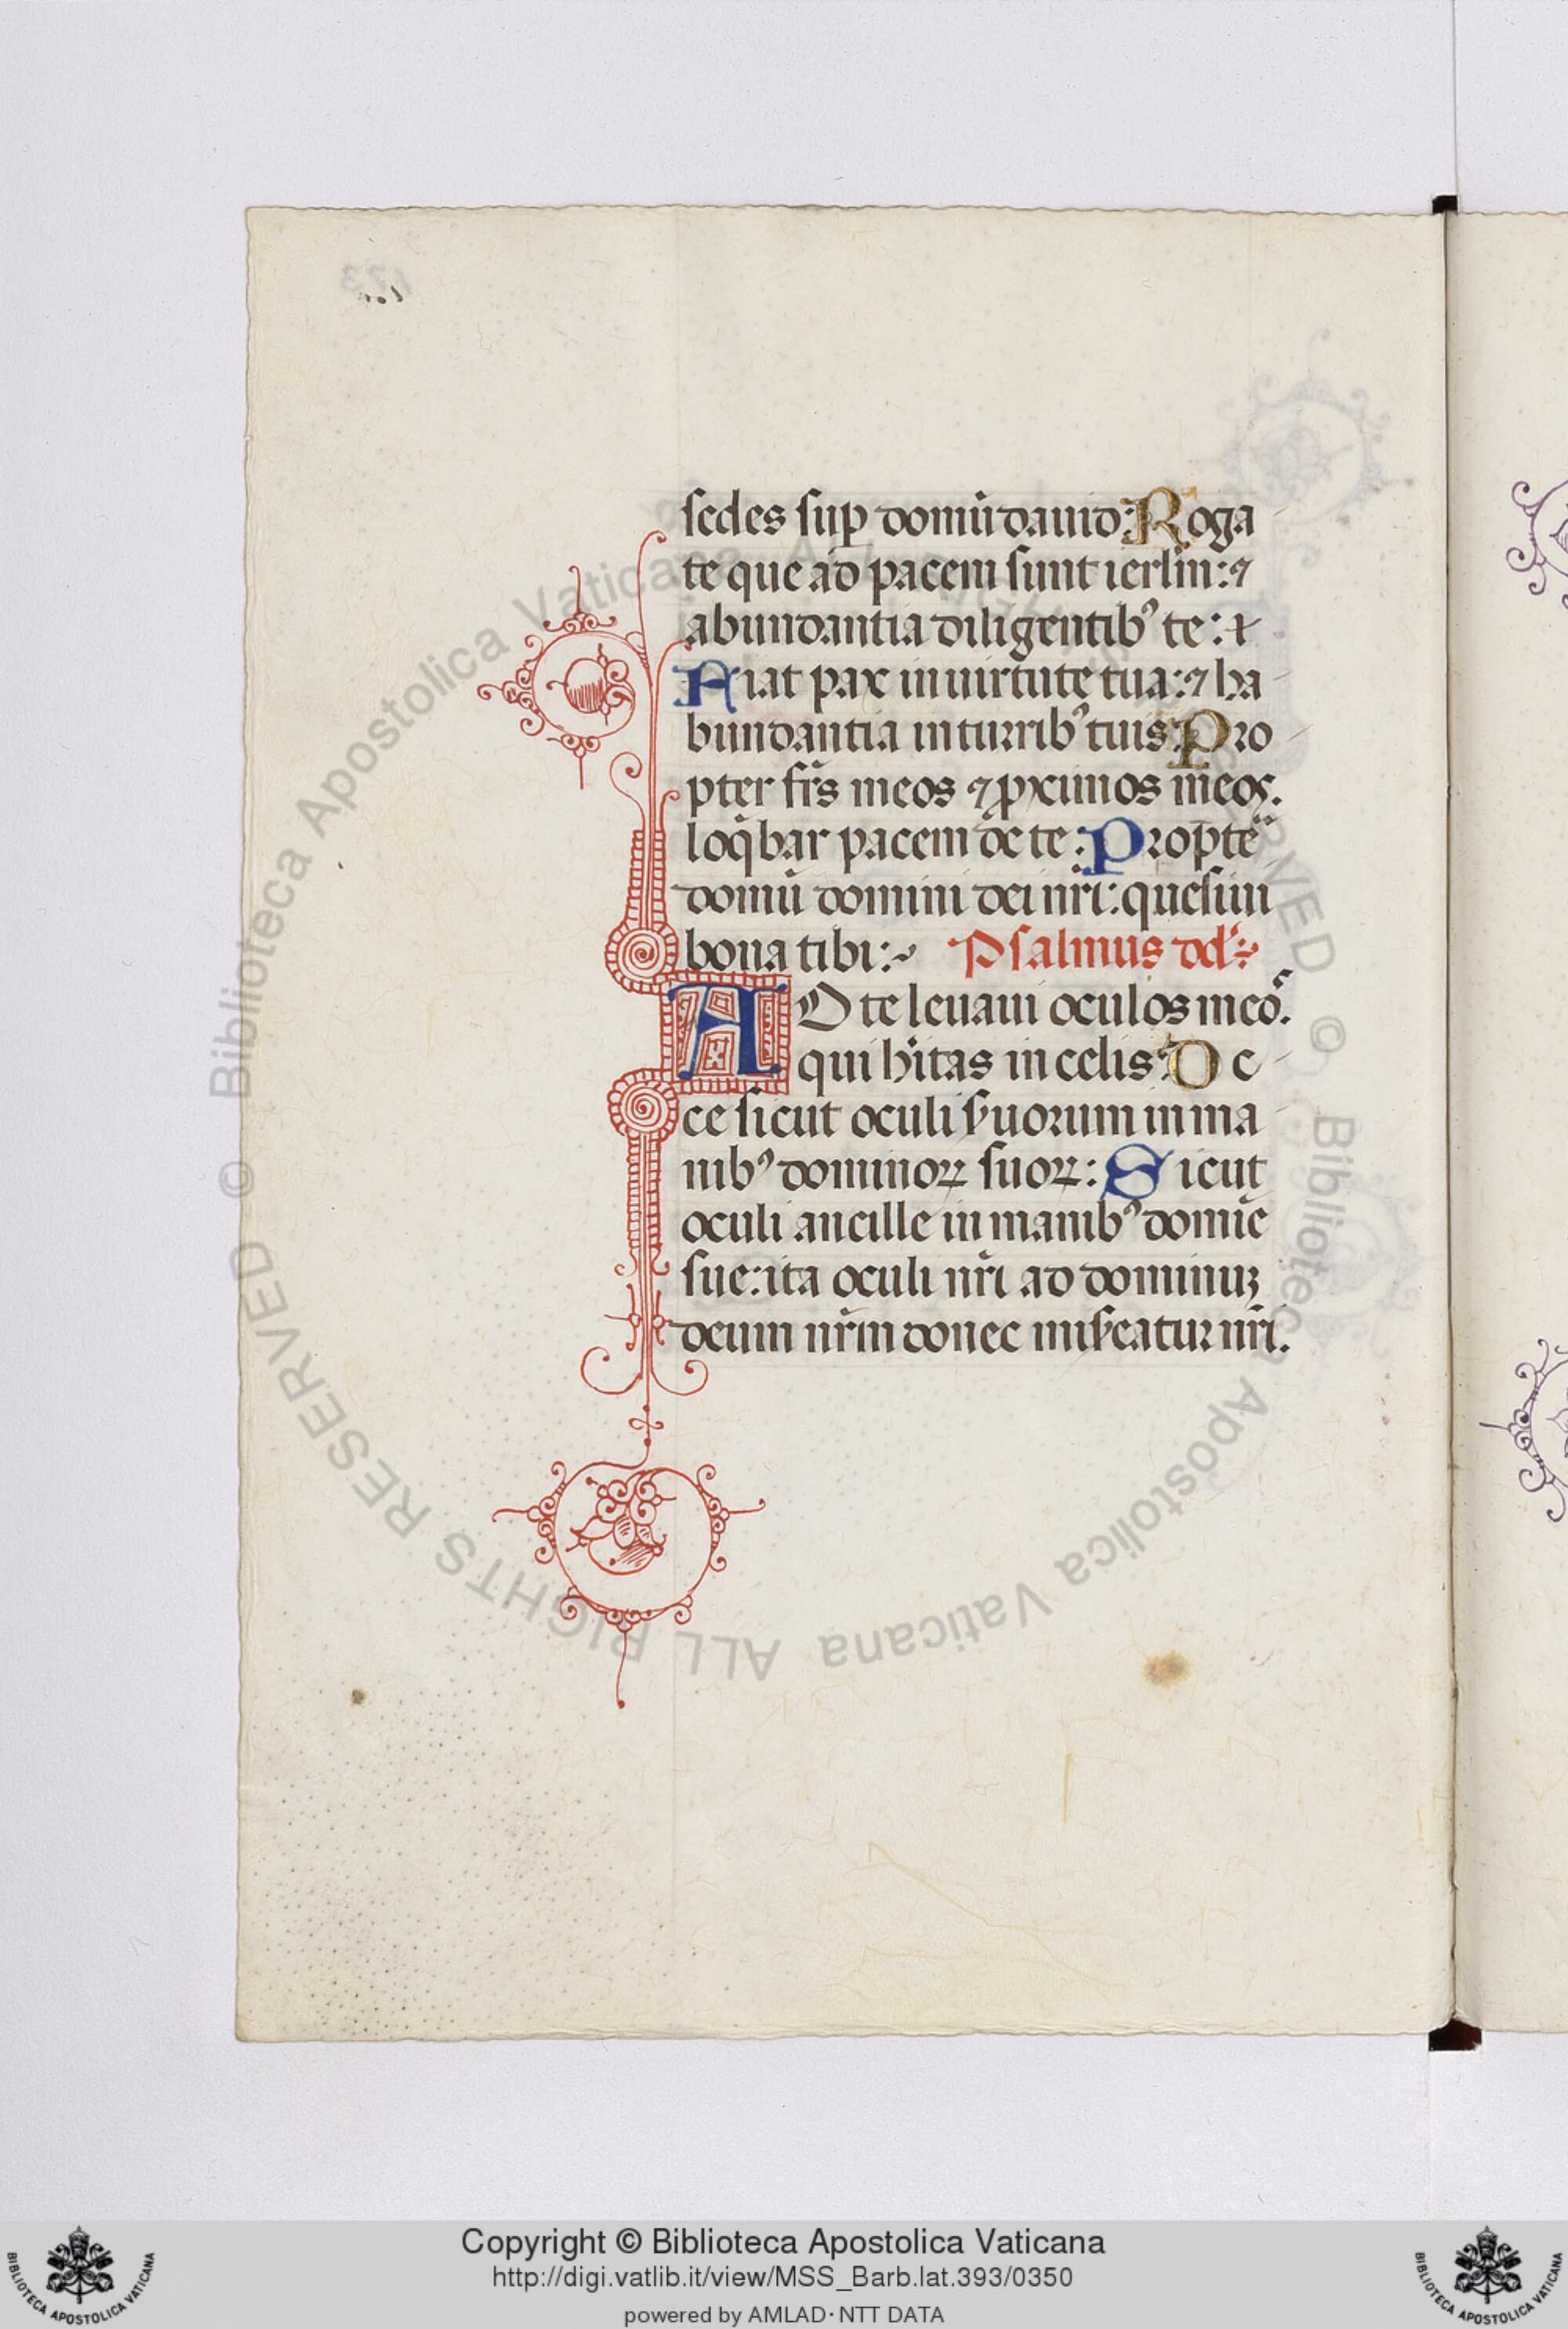 sedes sup̱ domū dauid: Roga
te que ad pacem sunt ierl̄m: ⁊
abundantia diligentib⁹ te: ⁊
Fiat pax in uirtute tua: ⁊ ha
bundantia in turrib⁹ tuis: Pro
pter fr̄s meos ⁊ ꝓximos meos.
loq̄bar pacem de te: Propte͛
domū domini dei nr̄i: quesiui
bona tibi: Psalmus dd̄:
AD te leuaui oculos meo͛s.
qui h̄itas in celis: E c
ce sicut oculi ẜuorum in ma
nib⁹ dominoꝝ suoꝝ: Sicut
oculi ancille in manib⁹ domīe
sue: ita oculi nr̄i ad dominuꝫ
deum nr̄m donec miẜeatur nr̄i.
Biblioteca Apostolica Vaticana ALL RIGHTS RESERVED ©
Copyright © Biblioteca Apostolica Vaticana
http://digi.vatlib.it/view/MSS_Barb.lat.393/0350
powered by AMLAD·NTT DATA
BIBLIOTECA APOSTOLICA VATICANA
BIBLIOTECA APOSTOLICA VATICANA